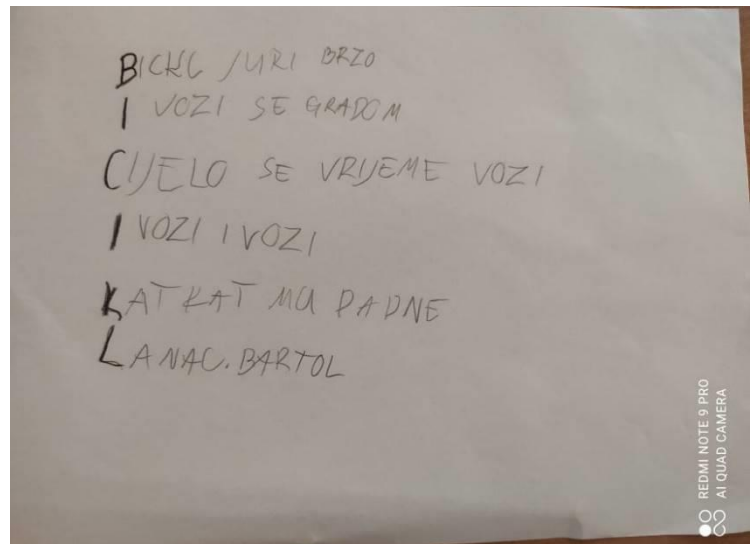 BICKL JURI BRZO
I VOZI SE GRADOM
CIJELO SE VRIJEME VOZI
I VOZI I VOZI
KATKAT MU PADNE
LANAC. BARTOL
REDMI NOTE 9 PRO
AI QUAD CAMERA